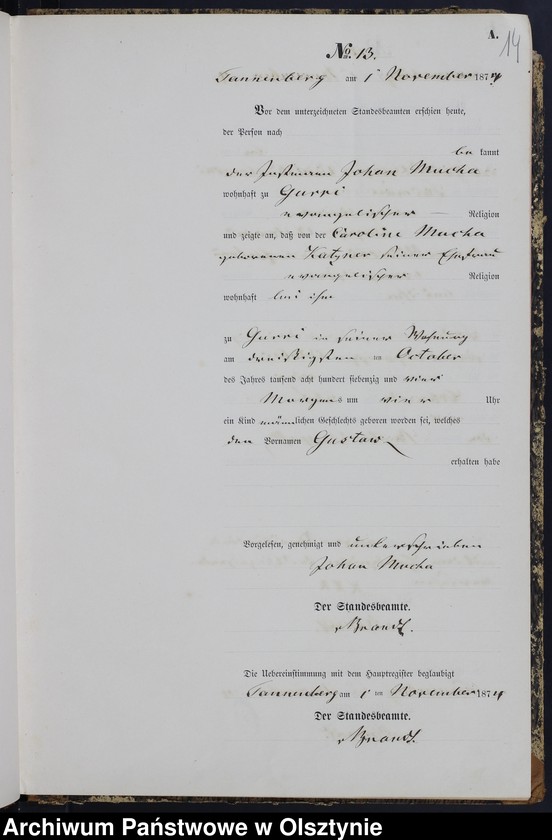 A.
14
No. 13.
Tannenberg am 1 November 1874
Vor dem unterzeichneten Standesbeamten erschien heute,
der Person nach
be kannt
der Instmann Johan Mucha
wohnhaft zu Gurri
evangelischer Religion
und zeigte an, daß von der Caroline Mucha
geborenen Katzner seiner Ehefrau
evangelischer Religion
wohnhaft bei ihm
zu Gurri in seiner Wohnung
am dreißigsten im October
des Jahres tausend acht hundert siebenzig und vier
Morgens um vier Uhr
ein Kind männlichen Geschlechts geboren worden sei, welches
den Vornamen Gustaw
erhalten habe
Vorgelesen, genehmigt und unterschrieben
Johan Mucha
Der Standesbeamte.
vBrandt.
Die Uebereinstimmung mit dem Hauptregister beglaubigt
Tannenberg am 1 im November 1874
Der Standesbeamte.
vBrandt.
Archiwum Państwowe w Olsztynie